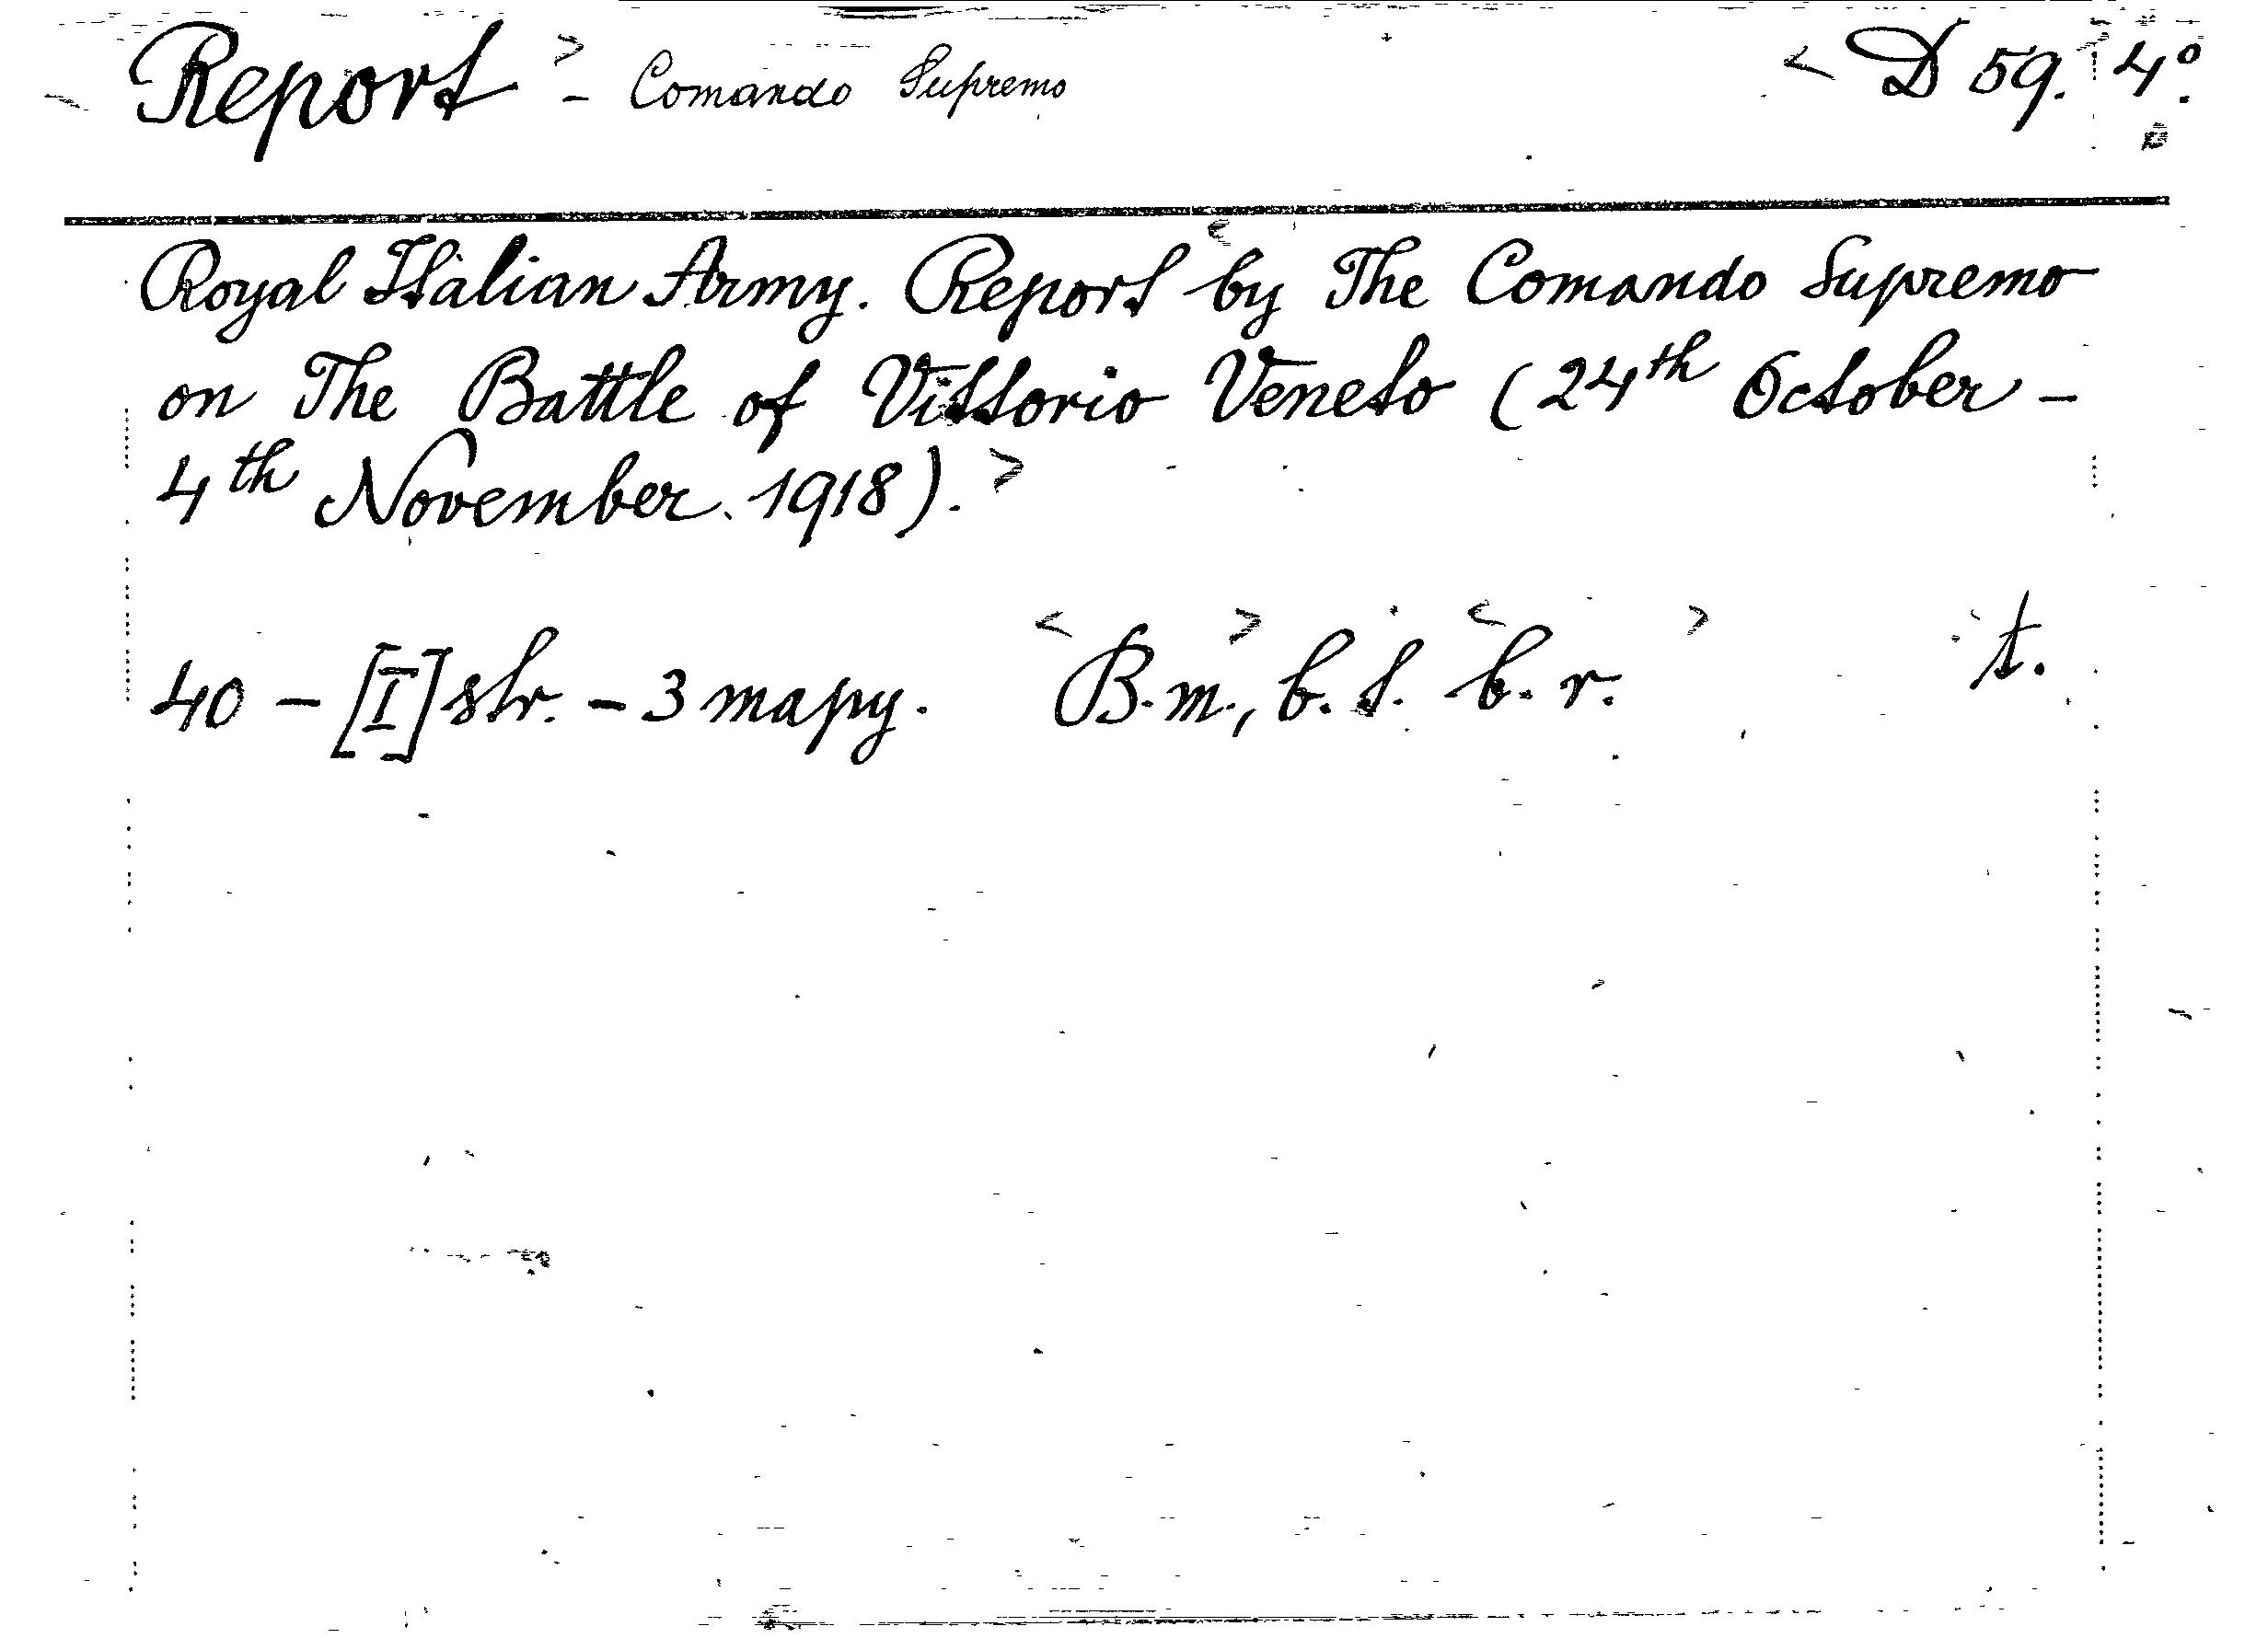 Report - Comando Supremo D 59. 4°.
Royal Italian Army. Report by The Comando Supremo
on The Battle of Vittorio Veneto (24th October -
4th November 1918).
40 - [I] str. - 3 mapy. B.m., b.t. b.r. t.